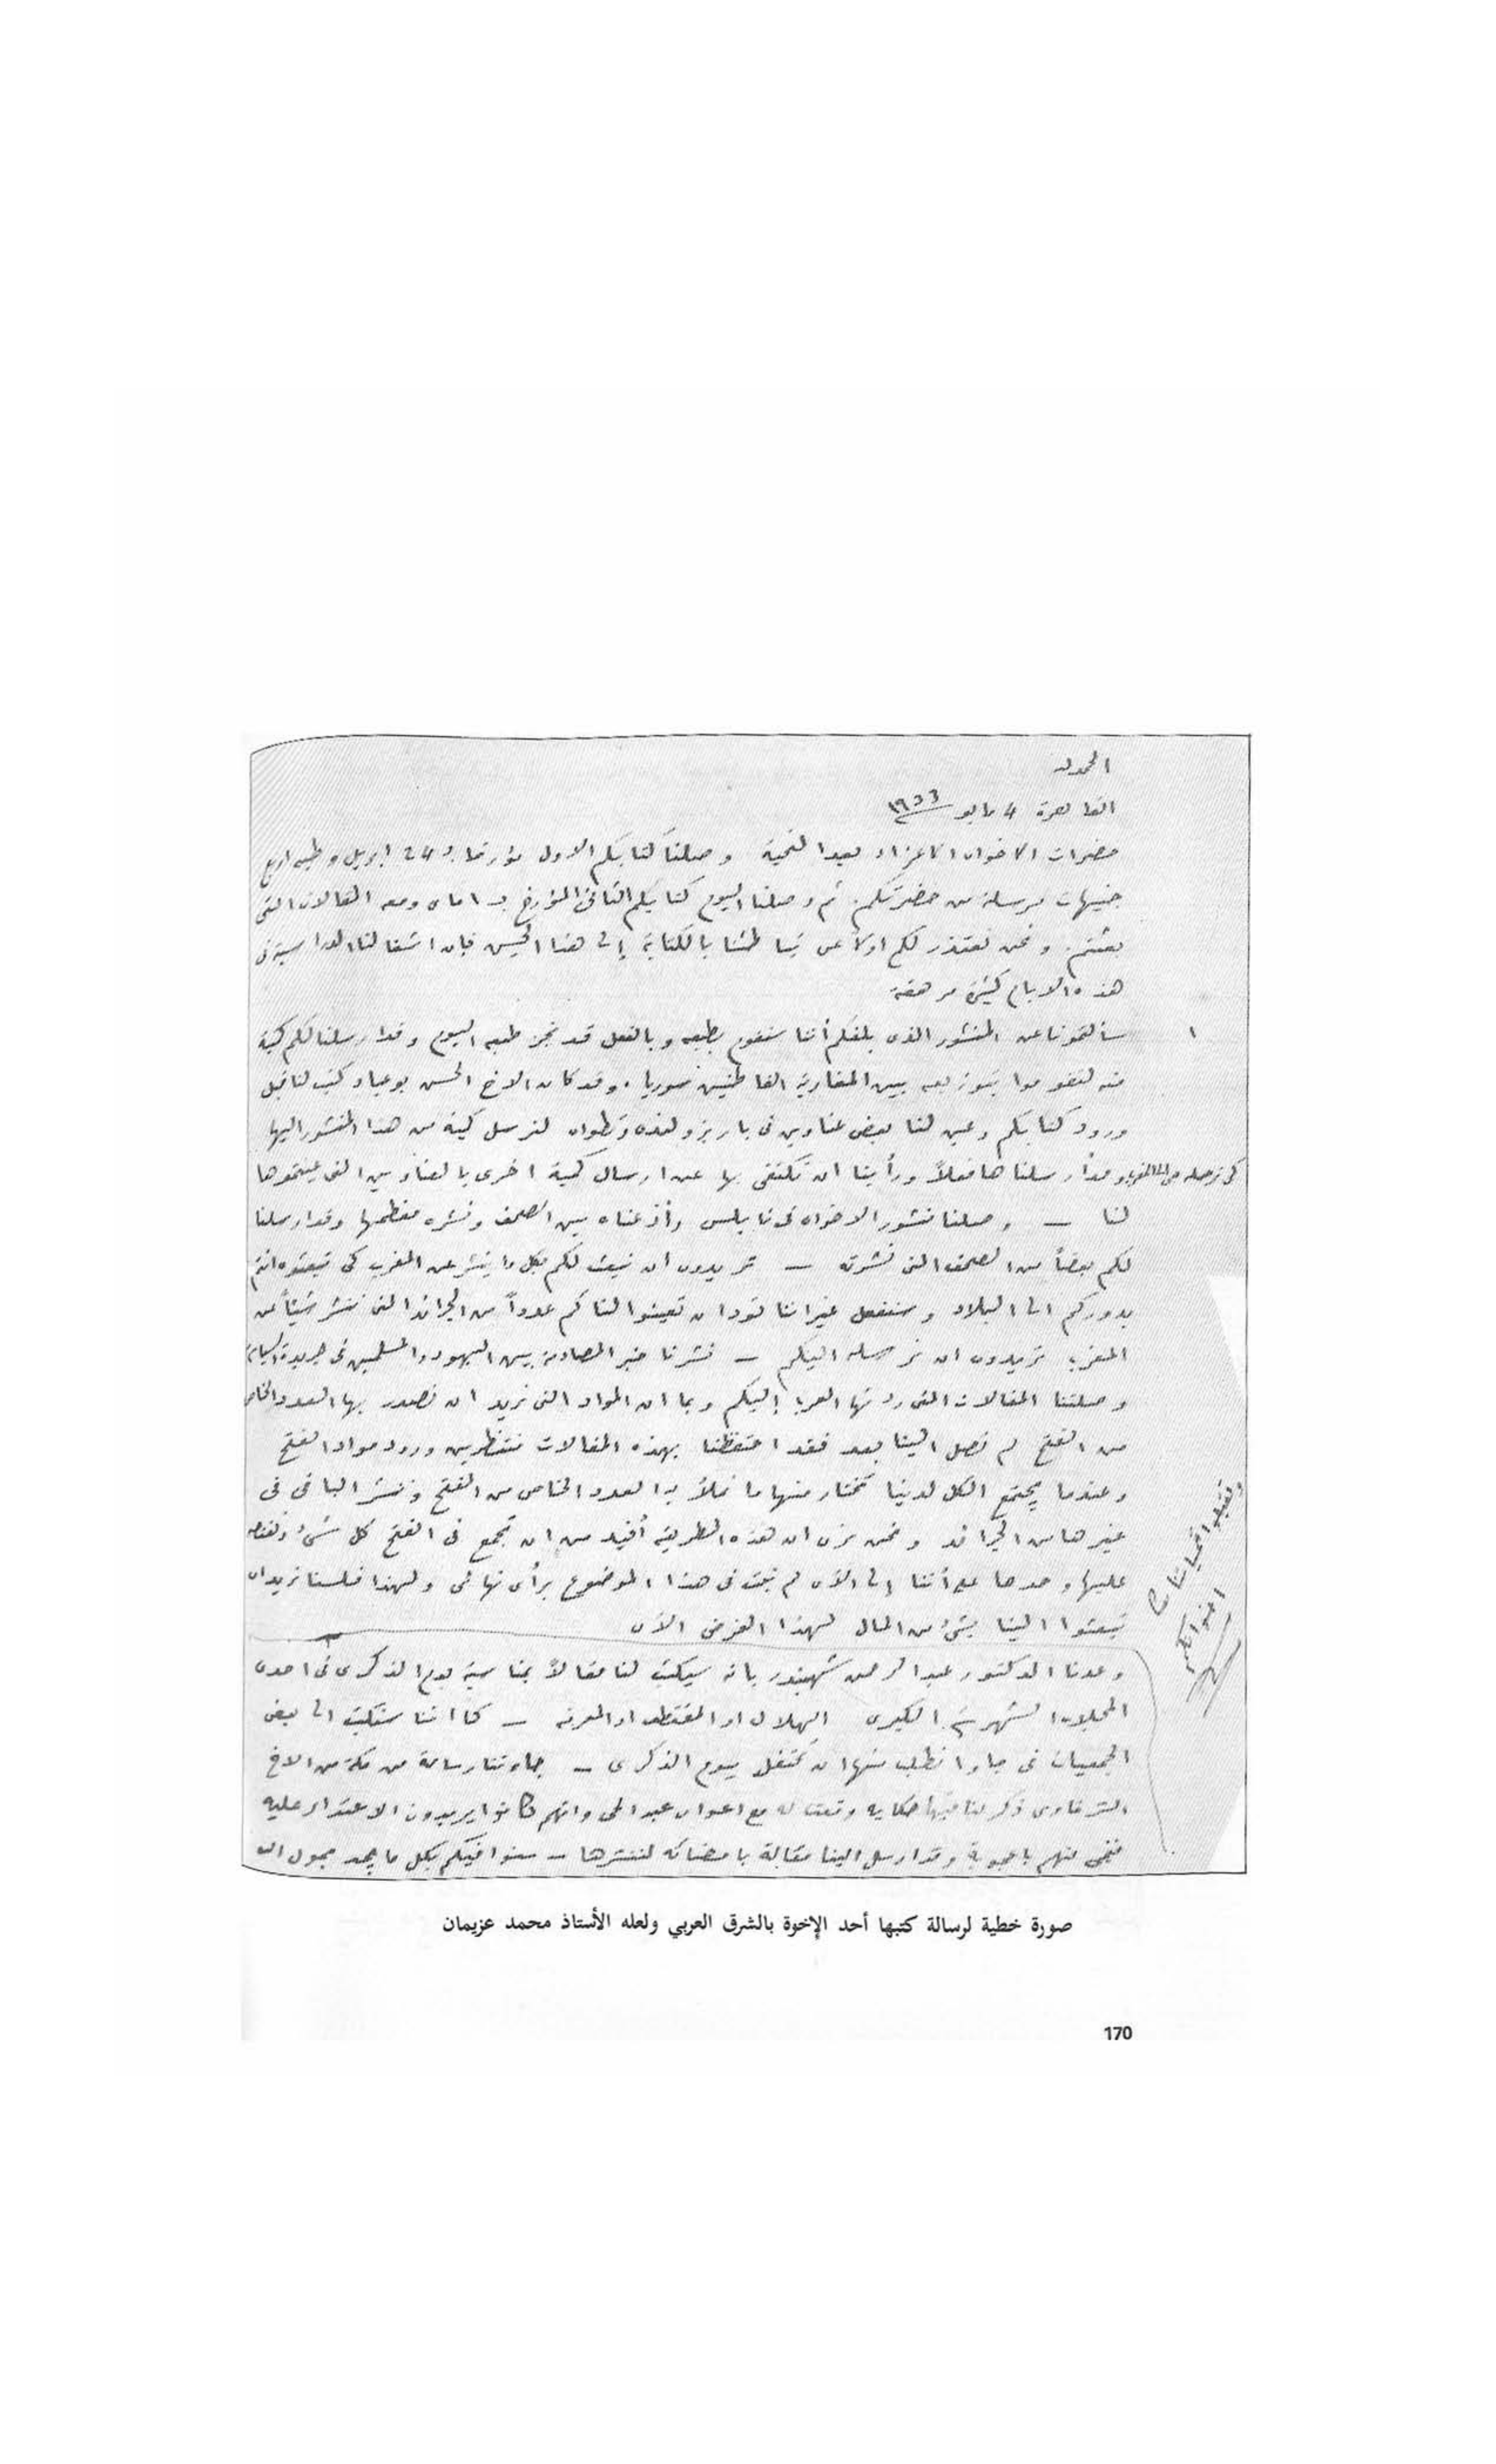 الحمد لله
القاهرة 4 مايو ١٩٣٣
حضرات الاخوان الاعزاء بعد التحية وصلنا كتابكم الاول مؤرخا بـ 24 ابريل وطيه اربع
جنيهات مرسلة من حضرتكم. ثم وصلنا اليوم كتابكم الثاني المؤرخ بـ 1 ماي ومعه المقالات التي
بعثتم. ونحن نعتذر لكم اولا عن تباطئنا بالكتابة إلى هذا الحين فإن اشغالنا الدراسية في
هذه الايام كثيرة مرهقة
١ سألتمونا عن المنشور الذي بلغكم أننا سنقوم بطبعه وبالفعل قد نجز طبعه اليوم وقد ارسلنا لكم كمية
منه لتقوموا بتوزيعه بين المغاربة القاطنين سوريا. وقد كان الاخ الحسن بوعياد كتب لنا قبل
ورود كتابكم وعين لنا بعض عناوين في باريز ولندن وتطوان لنرسل كمية من هذا المنشور اليها
كي نرسله من الى المغرب وقد أرسلناها فعلاً ورأينا ان نكتفي بها عن ارسال كمية اخرى بالعناوين التي عينتموها
لنا — وصلنا منشور الاخوان في نابلس وأذعناه بين الصحف ونشره معظمها وقد ارسلنا
لكم بعضاً من الصحف التي نشرته — تريدون ان نبعث لكم بكل ما ينشر عن المغرب كي تبعثوه انتم
بدوركم الى البلاد وسنفعل غير اننا نود ان تعينوا لنا كم عدداً من الجرائد التي تنشر شيئاً عن
المغرب تريدون ان نرسله اليكم — نشرنا خبر المصادمة بين اليهود والمسلمين في جريدة السياسة
وصلتنا المقالات التي ردتها العرب إليكم وبما ان المواد التي نريد ان نصدر بها العدد الخاص
من الفتح لم تصل الينا بعد فقد احتفظنا بهذه المقالات منتظرين ورود مواد الفتح
وعندما يجتمع الكل لدينا نختار منها ما نملأ به العدد الخاص من الفتح وننشر الباقي في
غيرها من الجرائد ونحن نرى ان هذه الطريقة أفيد من ان نجمع في الفتح كل شيء ونقتصر
عليها وحدها على أننا إلى الآن لم نبت في هذا الموضوع برأي نهائي ولهذا فلسنا نريد ان
تبعثوا الينا بشيء من المال لهذا الغرض الآن
وعدنا الدكتور عبد الرحمن شهبندر بانه سيكتب لنا مقالاً بمناسبة يوم الذكرى في احدى
المجلات الشهرية الكبرى الهلال او المقتطف او المعرفة — كما اننا سنكتب الى بعض
الجمعيات في جاوا نطلب منها ان تحتفل بيوم الذكرى — جاءتنا رسالة من مكة من الاخ
الشرقاوي ذكر لنا فيها حكاية وقعت له مع اعوان عبد الحي وانهم كانوا يريدون الاعتداء عليه
فنجى منهم باعجوبة وقد ارسل الينا مقالة بامضائه لننشرها — سنوافيكم بكل ما يجد بحول الله
وتقبلوا تحياتنا
اخوانكم
صورة خطية لرسالة كتبها أحد الإخوة بالشرق العربي ولعله الأستاذ محمد عزيمان
170